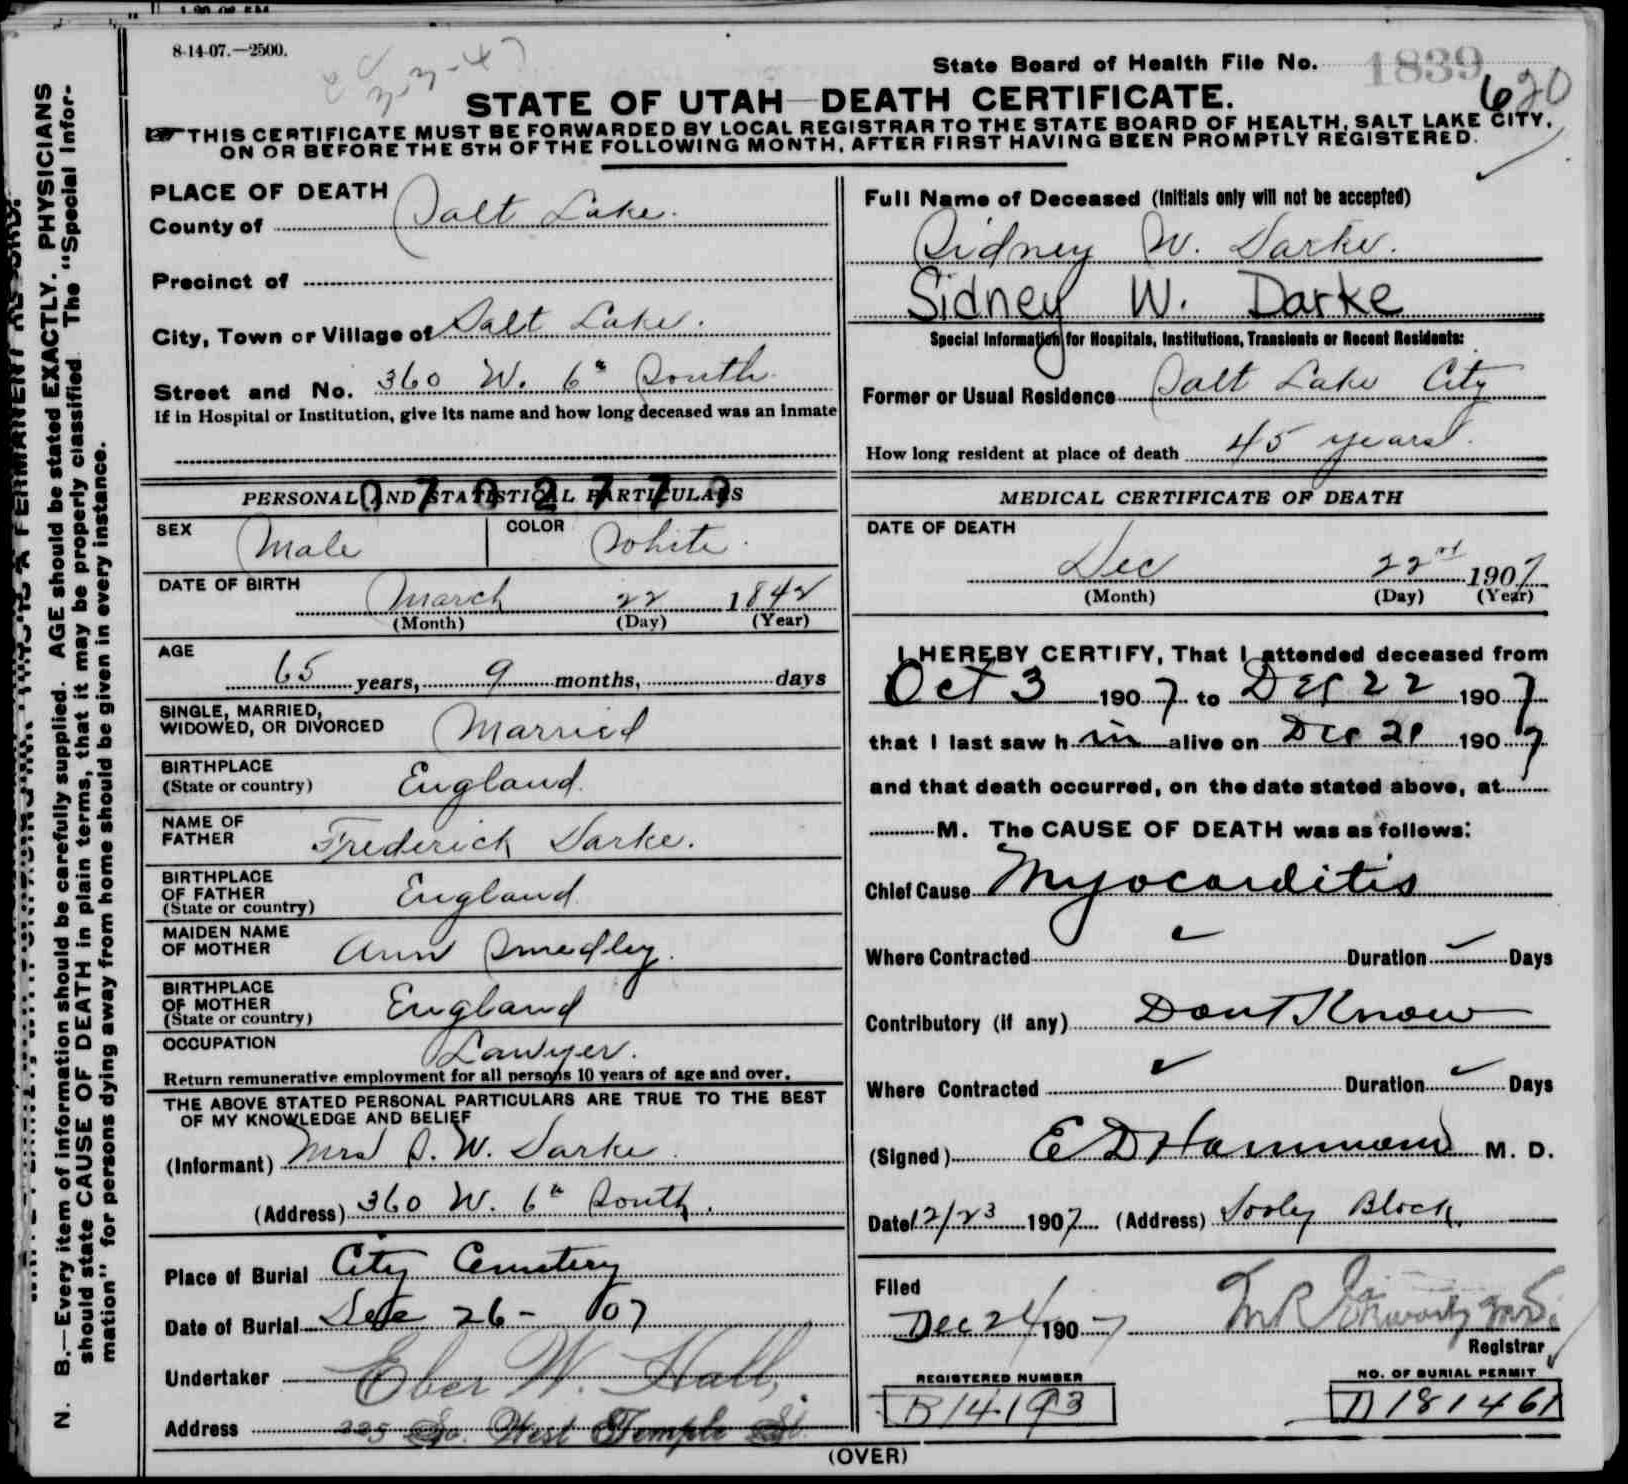 8-14-07.—2500.
State Board of Health File No. 1839
620
STATE OF UTAH—DEATH CERTIFICATE.
THIS CERTIFICATE MUST BE FORWARDED BY LOCAL REGISTRAR TO THE STATE BOARD OF HEALTH, SALT LAKE CITY,
ON OR BEFORE THE 5TH OF THE FOLLOWING MONTH, AFTER FIRST HAVING BEEN PROMPTLY REGISTERED.
N. B.—Every item of information should be carefully supplied. AGE should be stated EXACTLY. PHYSICIANS
should state CAUSE OF DEATH in plain terms, that it may be properly classified. The "Special Infor-
mation" for persons dying away from home should be given in every instance.
PLACE OF DEATH
County of Salt Lake.
Precinct of
City, Town or Village of Salt Lake.
Street and No. 360 W. 6th South
If in Hospital or Institution, give its name and how long deceased was an inmate
PERSONAL AND STATISTICAL PARTICULARS
SEX Male COLOR White.
DATE OF BIRTH March 22 1842
(Month) (Day) (Year)
AGE
65 years, 9 months, days
SINGLE, MARRIED,
WIDOWED, OR DIVORCED Married
BIRTHPLACE
(State or country) England.
NAME OF
FATHER Frederick Darke.
BIRTHPLACE
OF FATHER
(State or country) England
MAIDEN NAME
OF MOTHER Ann Smedley.
BIRTHPLACE
OF MOTHER
(State or country) England
OCCUPATION Lawyer.
Return remunerative employment for all persons 10 years of age and over.
THE ABOVE STATED PERSONAL PARTICULARS ARE TRUE TO THE BEST
OF MY KNOWLEDGE AND BELIEF
(Informant) Mrs S. W. Darke.
(Address) 360 W. 6th South.
Place of Burial City Cemetery
Date of Burial Dec 26 - 07
Undertaker Eber W. Hall,
Address 335 So. West Temple St.
Full Name of Deceased (Initials only will not be accepted)
Sidney W. Darke.
Sidney W. Darke
Special Information for Hospitals, Institutions, Transients or Recent Residents:
Former or Usual Residence Salt Lake City
How long resident at place of death 45 years.
MEDICAL CERTIFICATE OF DEATH
DATE OF DEATH
Dec 22nd 1907
(Month) (Day) (Year)
I HEREBY CERTIFY, That I attended deceased from
Oct 3 1907 to Dec 22 1907
that I last saw h im alive on Dec 21 1907
and that death occurred, on the date stated above, at
M. The CAUSE OF DEATH was as follows:
Chief Cause Myocarditis
Where Contracted Duration Days
Contributory (if any) Dont Know
Where Contracted Duration Days
(Signed) E D Hammond M. D.
Date 12/23 1907 (Address) Dooly Block.
Filed
Dec 24 1907
Registrar
REGISTERED NUMBER
B14193
NO. OF BURIAL PERMIT
D18146
(OVER)